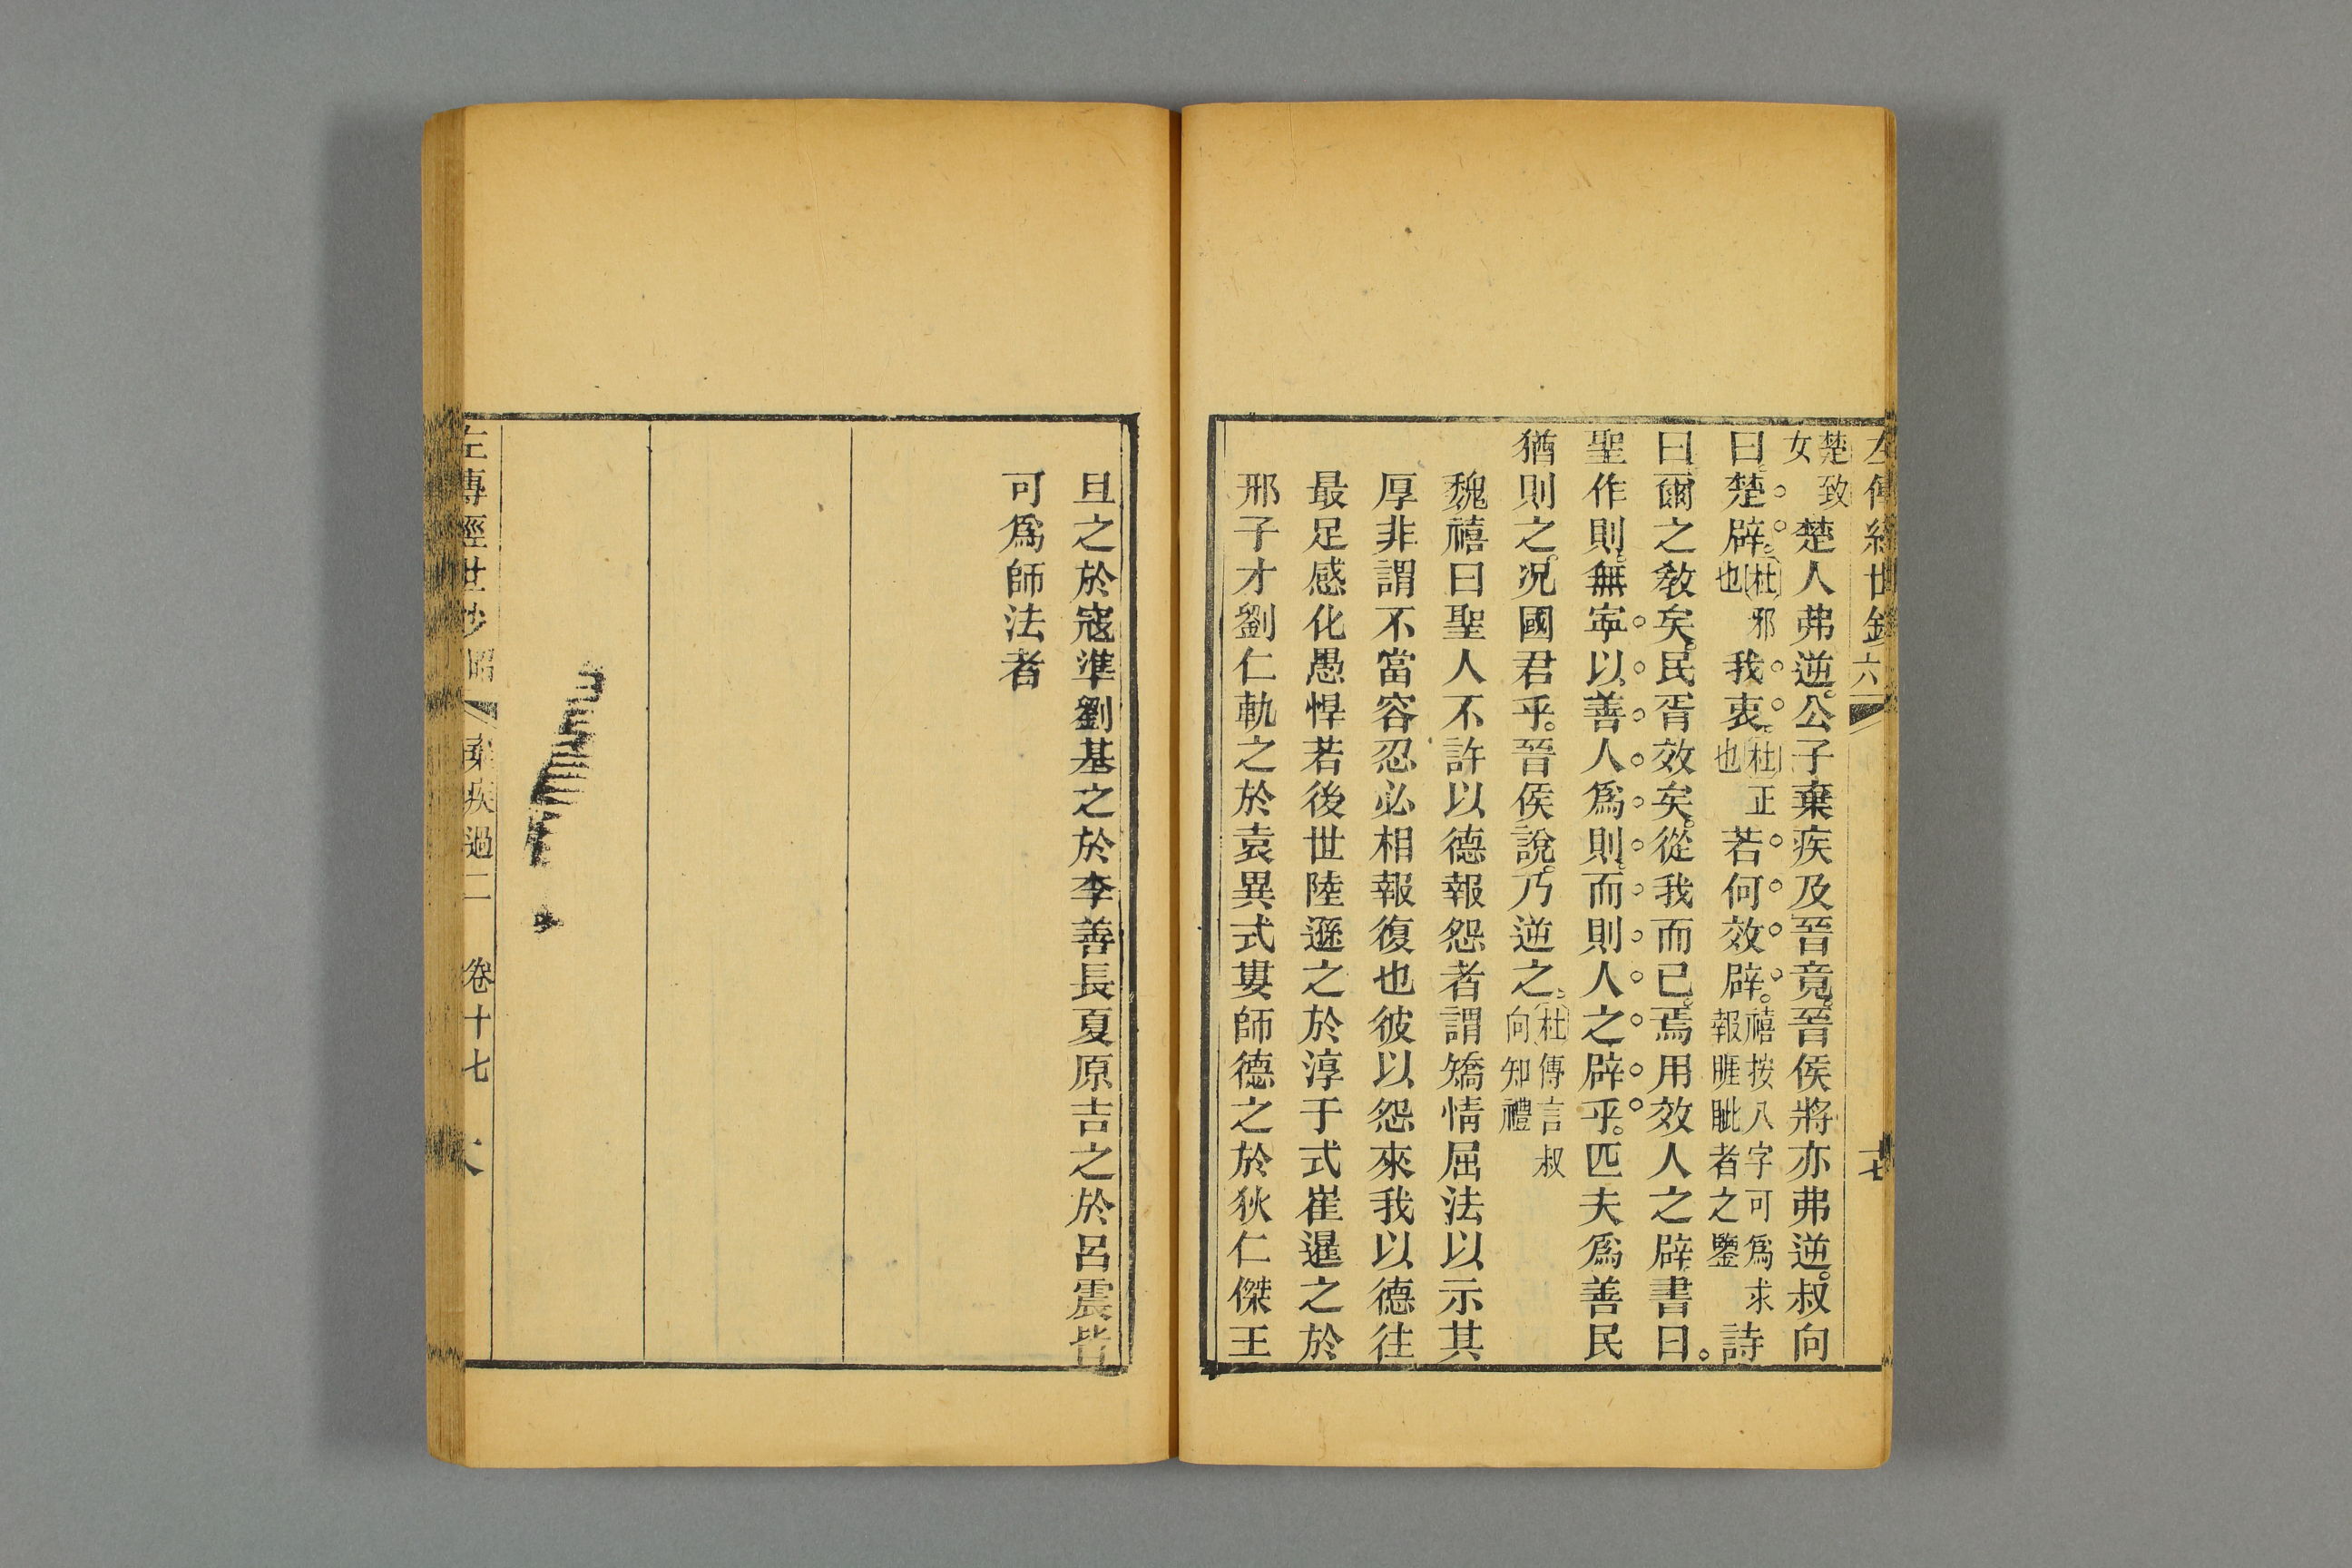 左傳經世鈔 六 十七
楚致女楚人弗逆公子棄疾及晉竟晉侯將亦弗逆叔向
曰楚辟杜邪也我衷杜正也若何效辟禧按八字可爲求報睚眦者之鑒詩
曰爾之敎矣民胥效矣從我而已焉用效人之辟書曰
聖作則無寧以善人爲則而則人之辟乎匹夫爲善民
猶則之况國君乎晉侯說乃逆之杜傳言叔向知禮
魏禧曰聖人不許以德報怨者謂矯情屈法以示其
厚非謂不當容忍必相報復也彼以怨來我以德往
最足感化愚悍若後世陸遜之於淳于式崔暹之於
邢子才劉仁軌之於袁異式婁師德之於狄仁傑王
旦之於寇準劉基之於李善長夏原吉之於呂震皆
可爲師法者
左傳經世鈔 昭 棄疾過二 卷十七